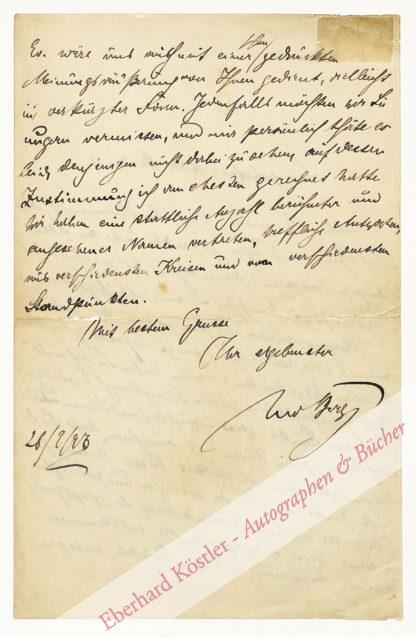 Ihnen
Es wäre uns mithin mit einer gedruckten
Meinungsäußerung von Ihnen gedient, vielleicht
in verkürzter Form. Jedenfalls möchten wir Sie
ungern vermissen, und mir persönlich thäte es
leid denjenigen nicht dabei zu sehen, auf dessen
Zustimmung ich am ehesten gerechnet hatte
Wir haben eine stattliche Anzahl berühmter und
angesehener Namen vertreten, treffliche Antworten,
aus verschiedensten Kreisen und von verschiedensten
Standpunkten.
Mit bestem Grusse
Ihr ergebenster
Leo Berg
26/
Eberhard Köstler - Autographen & Bücher